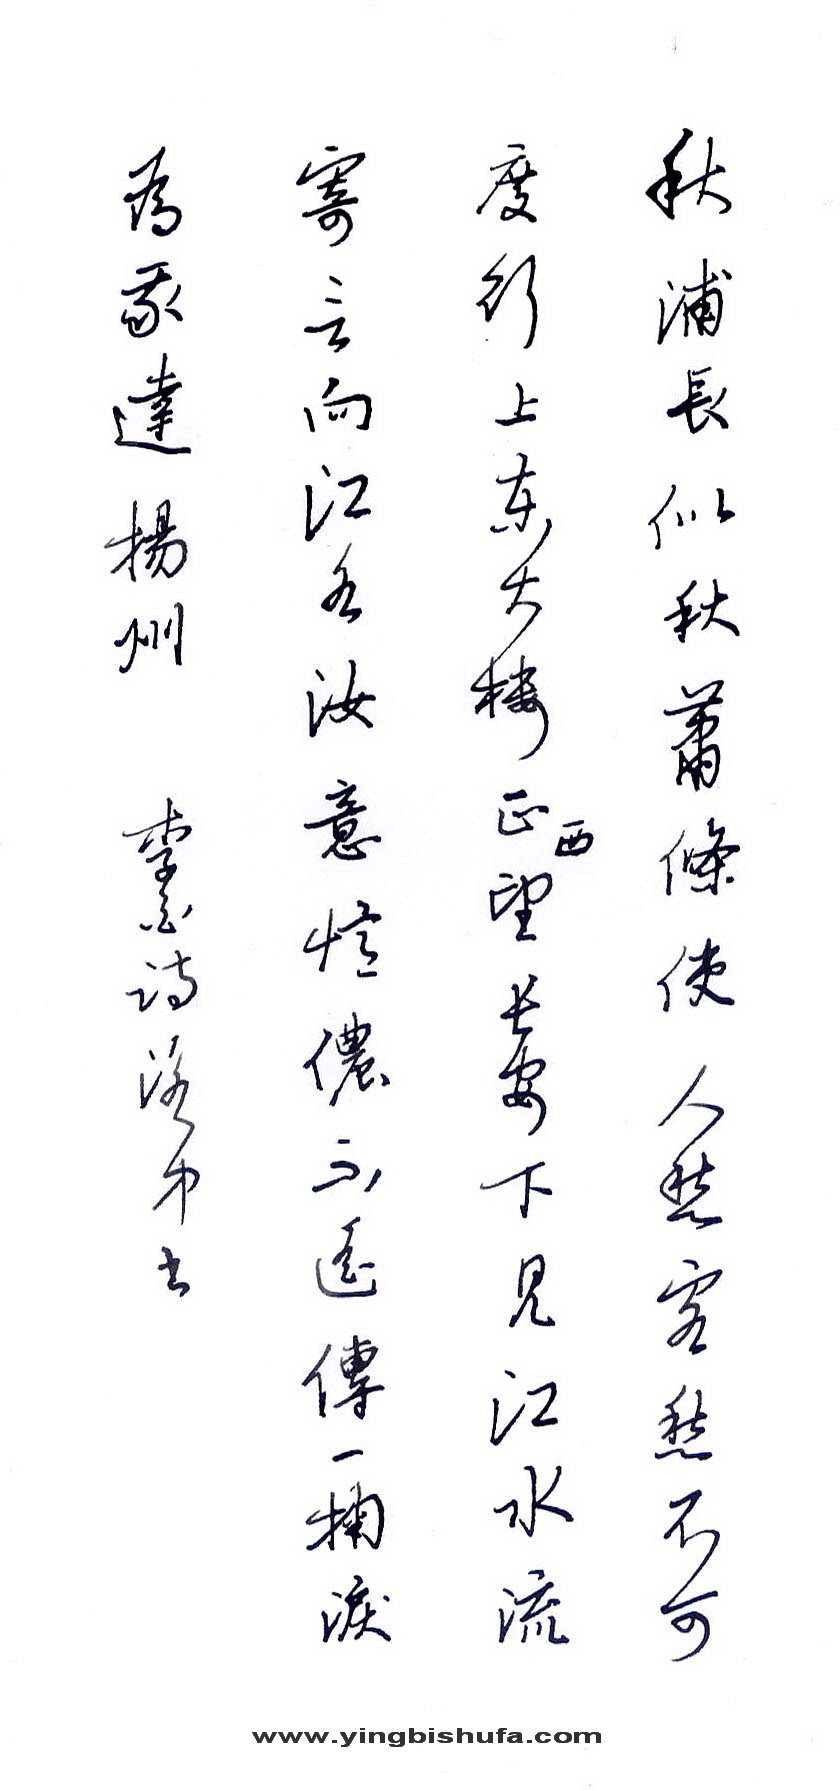 秋浦長似秋蕭條使人愁客愁不可
度行上东大樓正西望长安下見江水流
寄言向江水汝意憶儂不遥傳一掬淚
為我達揚州 李白詩 书
www.yingbishufa.com